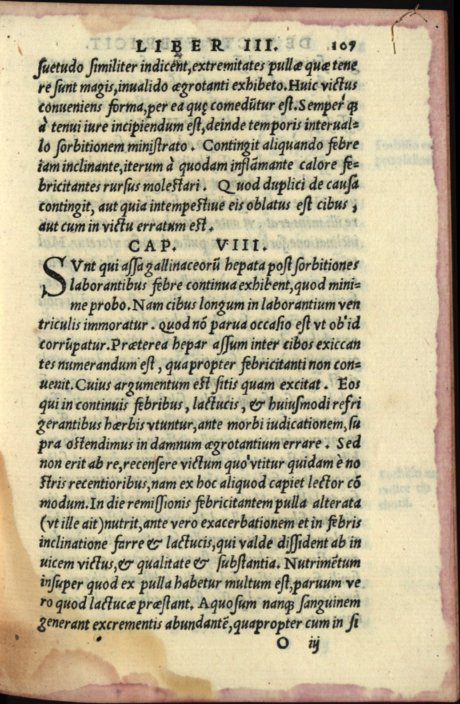 LIBER III. 107
suetudo similiter indicent, extremitates pullæ quæ tene
re sunt magis, inualido ægrotanti exhibeto. Huic victus
conueniens forma, per ea quę comedūtur est. Semper qꝫ
à tenui iure incipiendum est, deinde temporis interual-
lo sorbitionem ministrato. Contingit aliquando febre
iam inclinante, iterum à quodam inflāmante calore fe-
bricitantes rursus molestari. Quod duplici de causa
contingit, aut quia intempestiue eis oblatus est cibus,
aut cum in victu erratum est.
CAP. VIII.
SVnt qui assa gallinaceorū hepata post sorbitiones
laborantibus febre continua exhibent, quod mini-
me probo. Nam cibus longum in laborantium ven
triculis immoratur. quod nō parua occasio est vt ob id
corrūpatur. Præterea hepar assum inter cibos exiccan
tes numerandum est, quapropter febricitanti non con-
uenit. Cuius argumentum est sitis quam excitat. Eos
qui in continuis febribus, lactucis, & huiusmodi refri
gerantibus hærbis vtuntur, ante morbi iudicationem, su
pra ostendimus in damnum ægrotantium errare. Sed
non erit ab re, recensere victum quo vtitur quidam è no
stris recentioribus, nam ex hoc aliquod capiet lector cō
modum. In die remissionis febricitantem pulla alterata
(vt ille ait) nutrit, ante vero exacerbationem et in febris
inclinatione farre & lactucis, qui valde dissident ab in
uicem victus, & qualitate & substantia. Nutrimētum
insuper quod ex pulla habetur multum est, paruum ve
ro quod lactucæ præstant. Aquosum nanqꝫ sanguinem
generant excrementis abundantē, quapropter cum in si
O iij